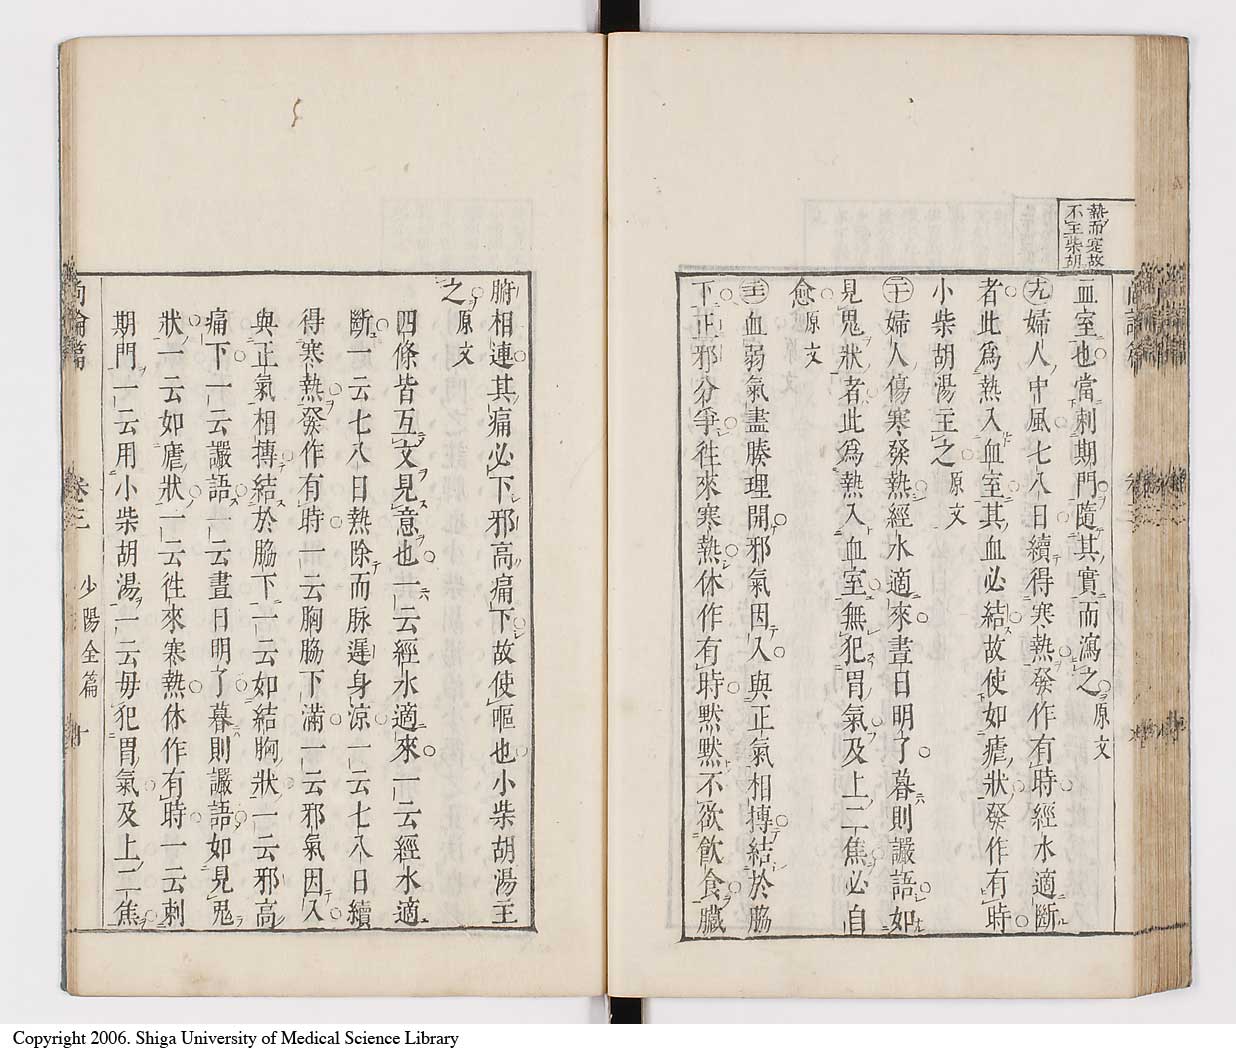 熱而寔故
不主柴胡
血室也當刺期門隨其實而瀉之原文
九婦人中風七八日續得寒熱發作有時經水適斷
者此爲熱入血室其血必結故使如瘧狀發作有時
小柴胡湯主之原文
二十婦人傷寒發熱經水適來晝日明了暮則讝語如
見鬼狀者此爲熱入血室無犯胃氣及上二焦必自
愈原文
血弱氣盡腠理開邪氣因入與正氣相摶結於脇
下正邪分爭往來寒熱休作有時默默不欲飲食臟
腑相連其痛必下邪高痛下故使嘔也小柴胡湯主
之原文
四條皆互文見意也一云經水適來一云經水適
斷一云七八日熱除而脉遲身涼一云七八日續
得寒熱發作有時一云胸脇下滿一云邪氣因入
與正氣相摶結於脇下一云如結胸狀一云邪高
痛下一云讝語一云晝日明了暮則讝語如見鬼
狀一云如瘧狀一云往來寒熱休作有時一云刺
期門一云用小柴胡湯一云毋犯胃氣及上二焦
尚論篇 卷三 少陽全篇 十
Copyright 2006. Shiga University of Medical Science Library